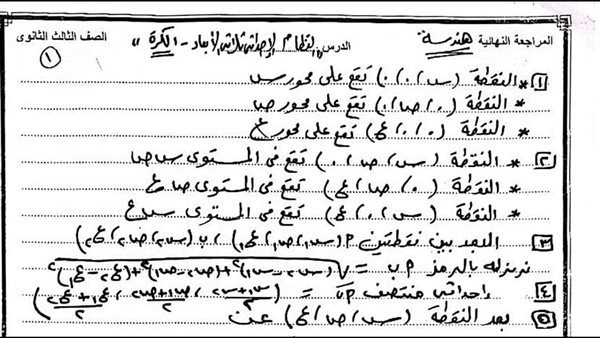 المراجعة النهائية هندسة الدرس "النظام الإحداثى ثلاثى الأبعاد - الكرة" الصف الثالث الثانوى
١
١ * النقطة (س ، ٠ ، ٠) تقع على محور س
* النقطة (٠ ، ص ، ٠) تقع على محور ص
* النقطة (٠ ، ٠ ، ع) تقع على محور ع
٢ * النقطة (س ، ص ، ٠) تقع فى المستوى س ص
* النقطة (٠ ، ص ، ع) تقع فى المستوى ص ع
* النقطة (س ، ٠ ، ع) تقع فى المستوى س ع
٣ البعد بين نقطتين م (س١ ، ص١ ، ع١) ، ب (س٢ ، ص٢ ، ع٢)
نرمز له بالرمز م ب = √(س٢ - س١)٢ + (ص٢ - ص١)٢ + (ع٢ - ع١)٢
٤ إحداثى منتصف م ب = (س١ + س٢ / ٢ ، ص١ + ص٢ / ٢ ، ع١ + ع٢ / ٢)
٥ بعد النقطة (س ، ص ، ع) عن